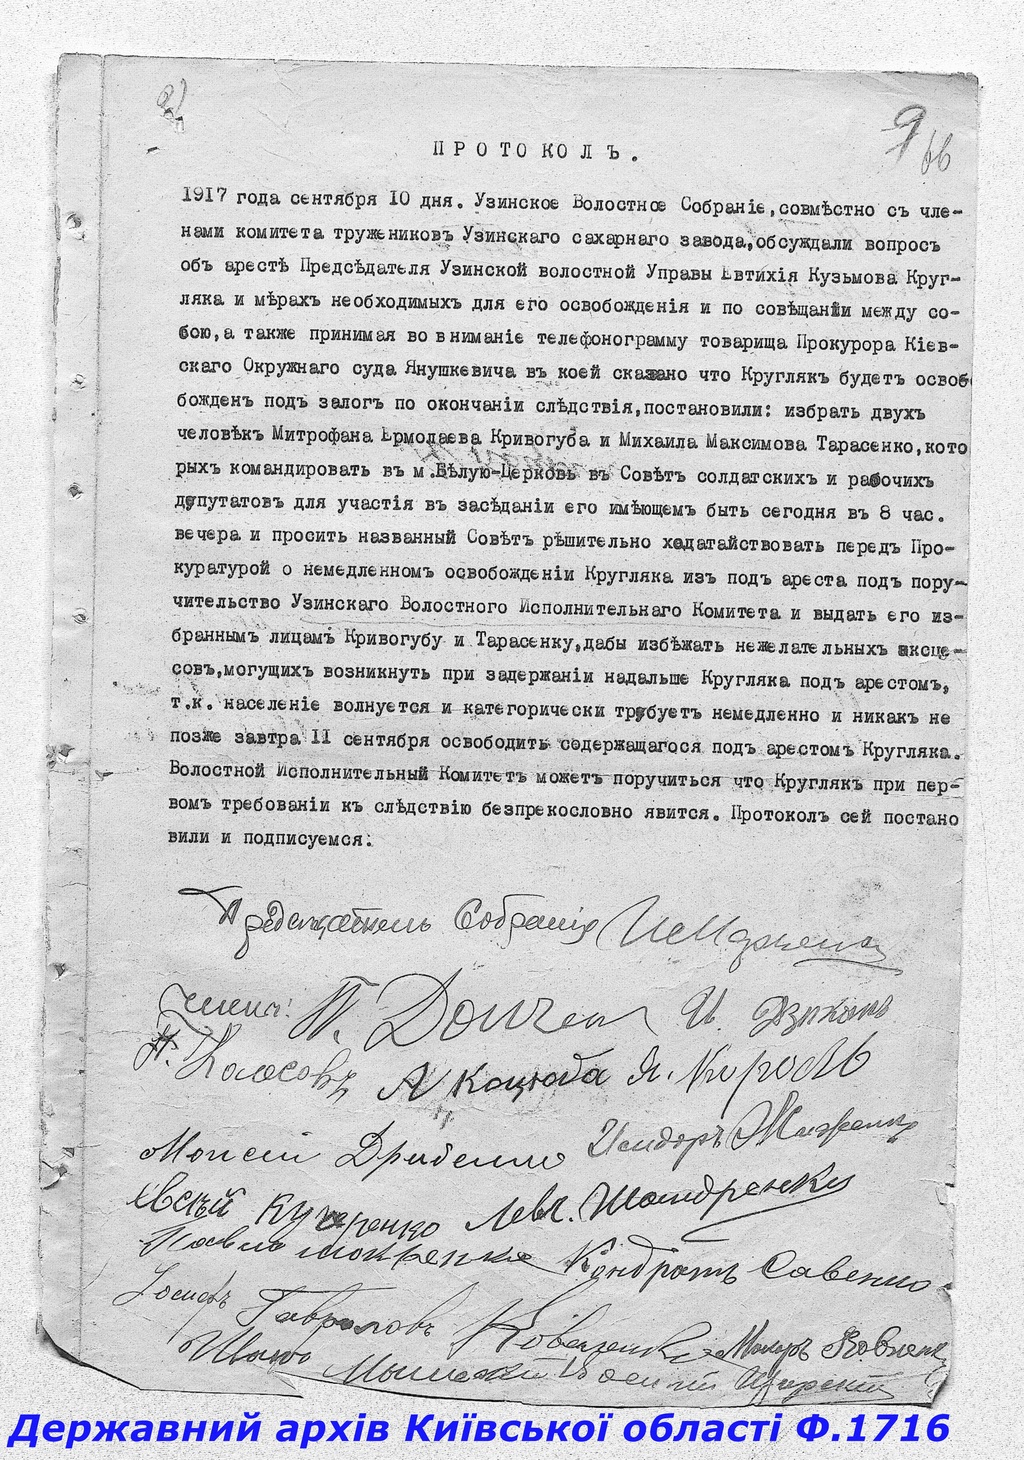 9
66
ПРОТОКОЛЪ.
1917 года сентября 10 дня. Узинское Волостное Собраніе,совмѣстно съ чле-
нами комитета тружениковъ Узинскаго сахарнаго завода,обсуждали вопросъ
объ арестѣ Предсѣдателя Узинской волостной Управы Евтихія Кузьмова Круг-
ляка и мѣрахъ необходимыхъ для его освобожденія и по совѣщаніи между со-
бою,а также принимая во вниманіе телефонограмму товарища Прокурора Кіев-
скаго Окружнаго суда Янушкевича въ коей сказано что Круглякъ будетъ освобо
божденъ подъ залогъ по окончаніи слѣдствія,постановили: избрать двухъ
человѣкъ Митрофана Ермолаева Кривогуба и Михаила Максимова Тарасенко,кото
рыхъ командировать въ м.Бѣлую-Церковь въ Совѣтъ солдатскихъ и рабочихъ
депутатовъ для участія въ засѣданіи его имѣющемъ быть сегодня въ 8 час.
вечера и просить названный Совѣтъ рѣшительно ходатайствовать передъ Про-
куратурой о немедленномъ освобожденіи Кругляка изъ подъ ареста подъ пору-
чительство Узинскаго Волостного Исполнительнаго Комитета и выдать его из-
браннымъ лицамъ Кривогубу и Тарасенку,дабы избѣжать нежелательныхъ эксце-
совъ,могущихъ возникнуть при задержаніи надальше Кругляка подъ арестомъ,
т.к. населеніе волнуется и категорически требуетъ немедленно и никакъ не
позже завтра 11 сентября освободить содержащагося подъ арестомъ Кругляка.
Волостной Исполнительный Комитетъ можетъ поручиться что Круглякъ при пер-
вомъ требованіи къ слѣдствію безпрекословно явится. Протоколъ сей постано
вили и подписуемся:
Предсѣдатель Собранія
Члены: П. И.
Колосовъ А Коцюба Я. Король
Моисей Исидоръ
Евсѣй Кучеренко
Павло Кондратъ Савенко
Іосифъ Гавриловъ
Державний архів Київської області Ф.1716